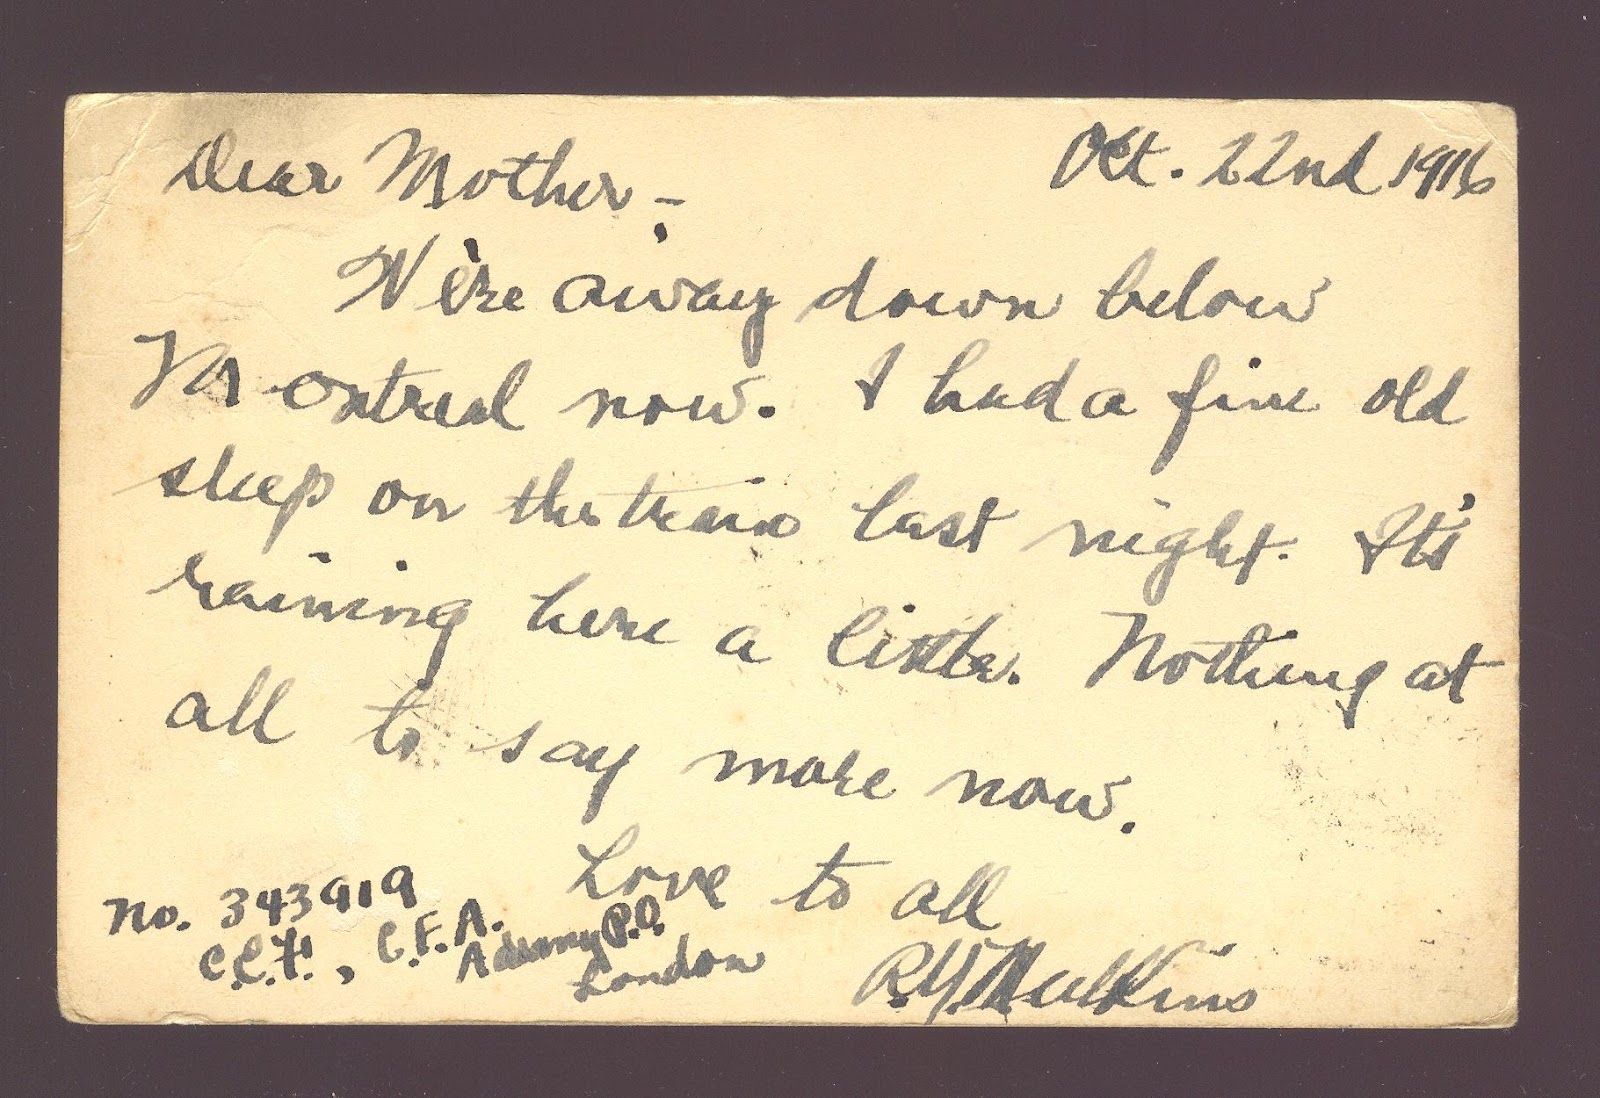 Dear Mother,- Oct. 22nd 1916
We're away down below
Montreal now. I had a fine old
sleep on the train last night. It's
raining here a little. Nothing at
all to say more now.
Love to all
No. 343919
C.E.F., C.F.A.
P.O.
London